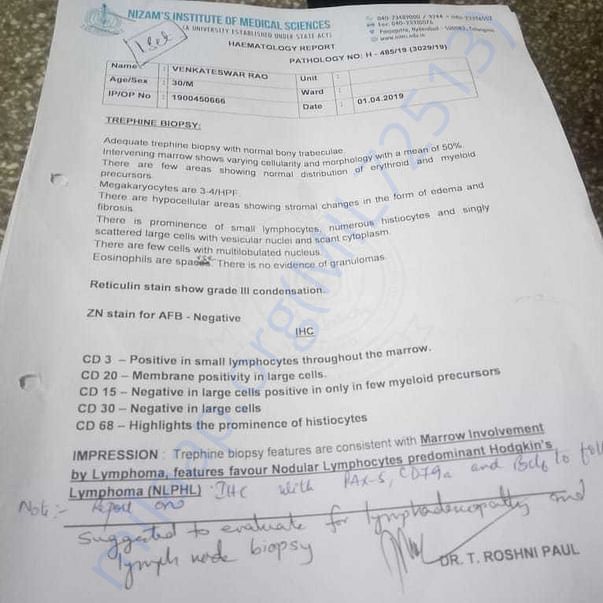 NIZAM'S INSTITUTE OF MEDICAL SCIENCES
(A UNIVERSITY ESTABLISHED UNDER STATE ACT)
HAEMATOLOGY REPORT
PATHOLOGY NO: H - 485/19 (3029/19)
Name : VENKATESWAR RAO Unit :
Age/Sex : 30/M Ward :
IP/OP No : 1900450666 Date : 01.04.2019
TREPHINE BIOPSY:
Adequate trephine biopsy with normal bony trabeculae.
Intervening marrow shows varying cellularity and morphology with a mean of 50%.
There are few areas showing normal distribution of erythroid and myeloid
precursors.
Megakaryocytes are 3-4/HPF.
There are hypocellular areas showing stromal changes in the form of edema and
fibrosis.
There is prominence of small lymphocytes, numerous histiocytes and singly
scattered large cells with vesicular nuclei and scant cytoplasm.
There are few cells with multilobulated nucleus.
Eosinophils are There is no evidence of granulomas.
Reticulin stain show grade III condensation.
ZN stain for AFB - Negative
IHC
CD 3 – Positive in small lymphocytes throughout the marrow.
CD 20 – Membrane positivity in large cells.
CD 15 – Negative in large cells positive in only in few myeloid precursors
CD 30 – Negative in large cells
CD 68 – Highlights the prominence of histiocytes
IMPRESSION : Trephine biopsy features are consistent with Marrow Involvement
by Lymphoma, features favour Nodular Lymphocytes predominant Hodgkin's
Lymphoma (NLPHL) IHC with PAX-5, CD79a and Bcl6 to
Note :- Report on
Suggested to evaluate for lymphadenopathy and
lymph node biopsy
DR. T. ROSHNI PAUL
milaap.org(MIL725513)